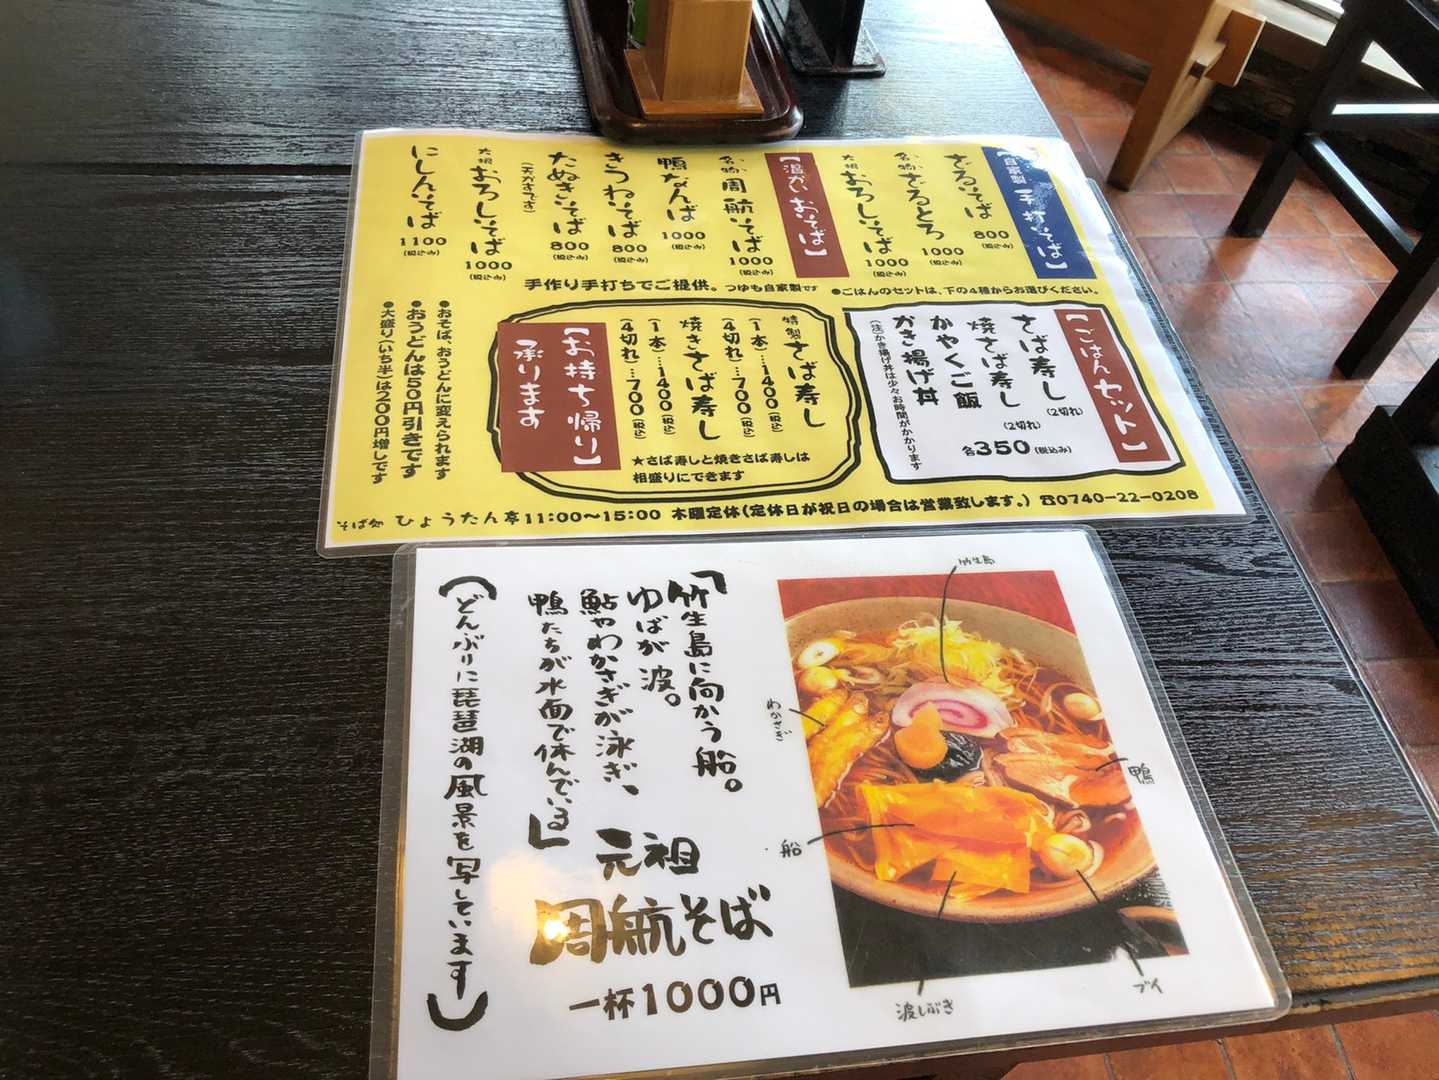 【自家製 手打そば】
ざるそば
800
(税込み)
名物 ざるとろ
1000
(税込み)
大根おろしそば
1000
(税込み)
【温かいおそば】
名物 周航そば
1000
(税込み)
鴨なんば
1000
(税込み)
きつねそば
800
(税込み)
たぬきそば
(天かすです)
800
(税込み)
大根おろしそば
1000
(税込み)
にしんそば
1100
(税込み)
手作り手打ちでご提供。つゆも自家製です
●ごはんのセットは、下の4種からお選びください。
【ごはんセット】
さば寿し
(2切れ)
焼さば寿し
(2切れ)
かやくご飯
かき揚げ丼
(注)かき揚げ丼は少々お時間がかかります
各350(税込み)
特製さば寿し
(1本)…1400(税込)
(4切れ)…700(税込)
焼きさば寿し
(1本)…1400(税込)
(4切れ)…700(税込)
★さば寿しと焼きさば寿しは
相盛りにできます
【お持ち帰り】
承ります
●おそば、おうどんに変えられます
●おうどんは50円引きです
●大盛り(いち半)は200円増しです
そば処 ひょうたん亭 11:00〜15:00 木曜定休(定休日が祝日の場合は営業致します。) ☎0740-22-0208
「竹生島に向かう船。
ゆばが波。
鮎やわかさぎが泳ぎ、
鴨たちが水面で休んでいる」
(どんぶりに琵琶湖の風景を写しています)
元祖
周航そば
一杯1000円
竹生島
わかさぎ
鴨
船
波しぶき
ブイ